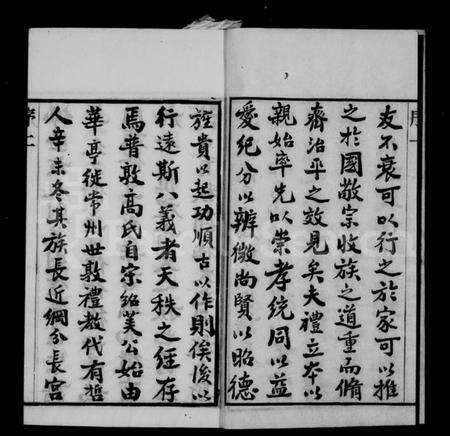 友不衰可以行之於家可以推
之於國敬宗收族之道重而脩
齊治平之效見矣夫禮立本以
親始率先以崇孝統同以益
愛紀分以辨微尚賢以昭德
序一
旌貴以起功順古以作則俟後以
行遠斯八義者天秩之經存
焉晉敦高氏自宗紹芙公始由
華亭徙常州世敦禮教代有哲
人辛未冬其族長近綱分長宮
序二